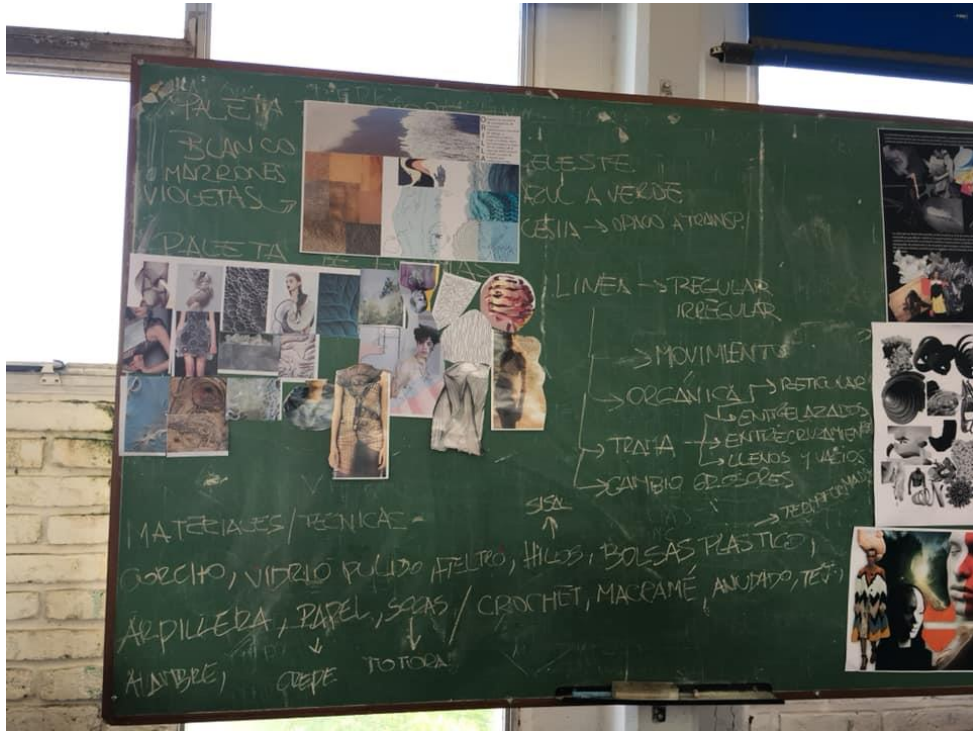 PALETA
BLANCO
MARRONES
VIOLETAS
ORILLA
CELESTE
AZUL A VERDE
CESIA → OPACO A TRANSP.
PALETA DE
LINEA → REGULAR
IRREGULAR
→ MOVIMIENTO
→ ORGÁNICA → RETICULAR
→ TRAMA → ENTRELAZADOS
→ ENTRECRUZAMIENTO
→ LLENOS Y VACIOS
→ CAMBIO GROSORES
MATERIALES/TECNICAS -
SISAL
→ TERMOFORMADO
CORCHO, VIDRIO PULIDO, FIELTRO, HILOS, BOLSAS PLASTICO,
ARPILLERA, PAPEL, SOGAS / CROCHET, MACRAMÉ, ANUDADO, TEJ.,
ALAMBRE, CREPE TOTORA